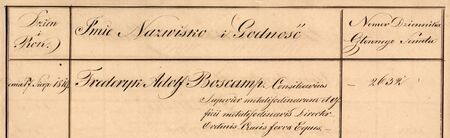 Dzień
i Rok.
Imie Nazwisko i Godność
Numer Dziennika
Głównego Senatu
dnia 17. Sierp. 18
Fryderyk Adolf Boscamp Consiliarius
Superior metallifodinarum et of
ficii metallifodinaris Director
Ordinis Crucis ferrea Eques
— 2652 —